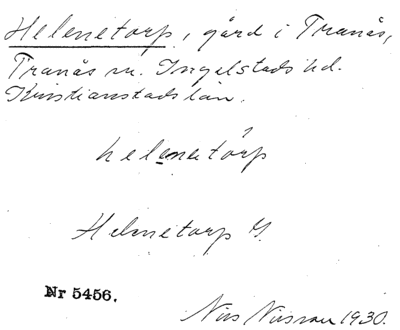 Helenetorp, gård i Tranås,
Tranås sn. Ingelstads hd.
Kristianstads län.
helenetorp
Helenetorp G.
Nr 5456.
Nils Nilsson 1930.